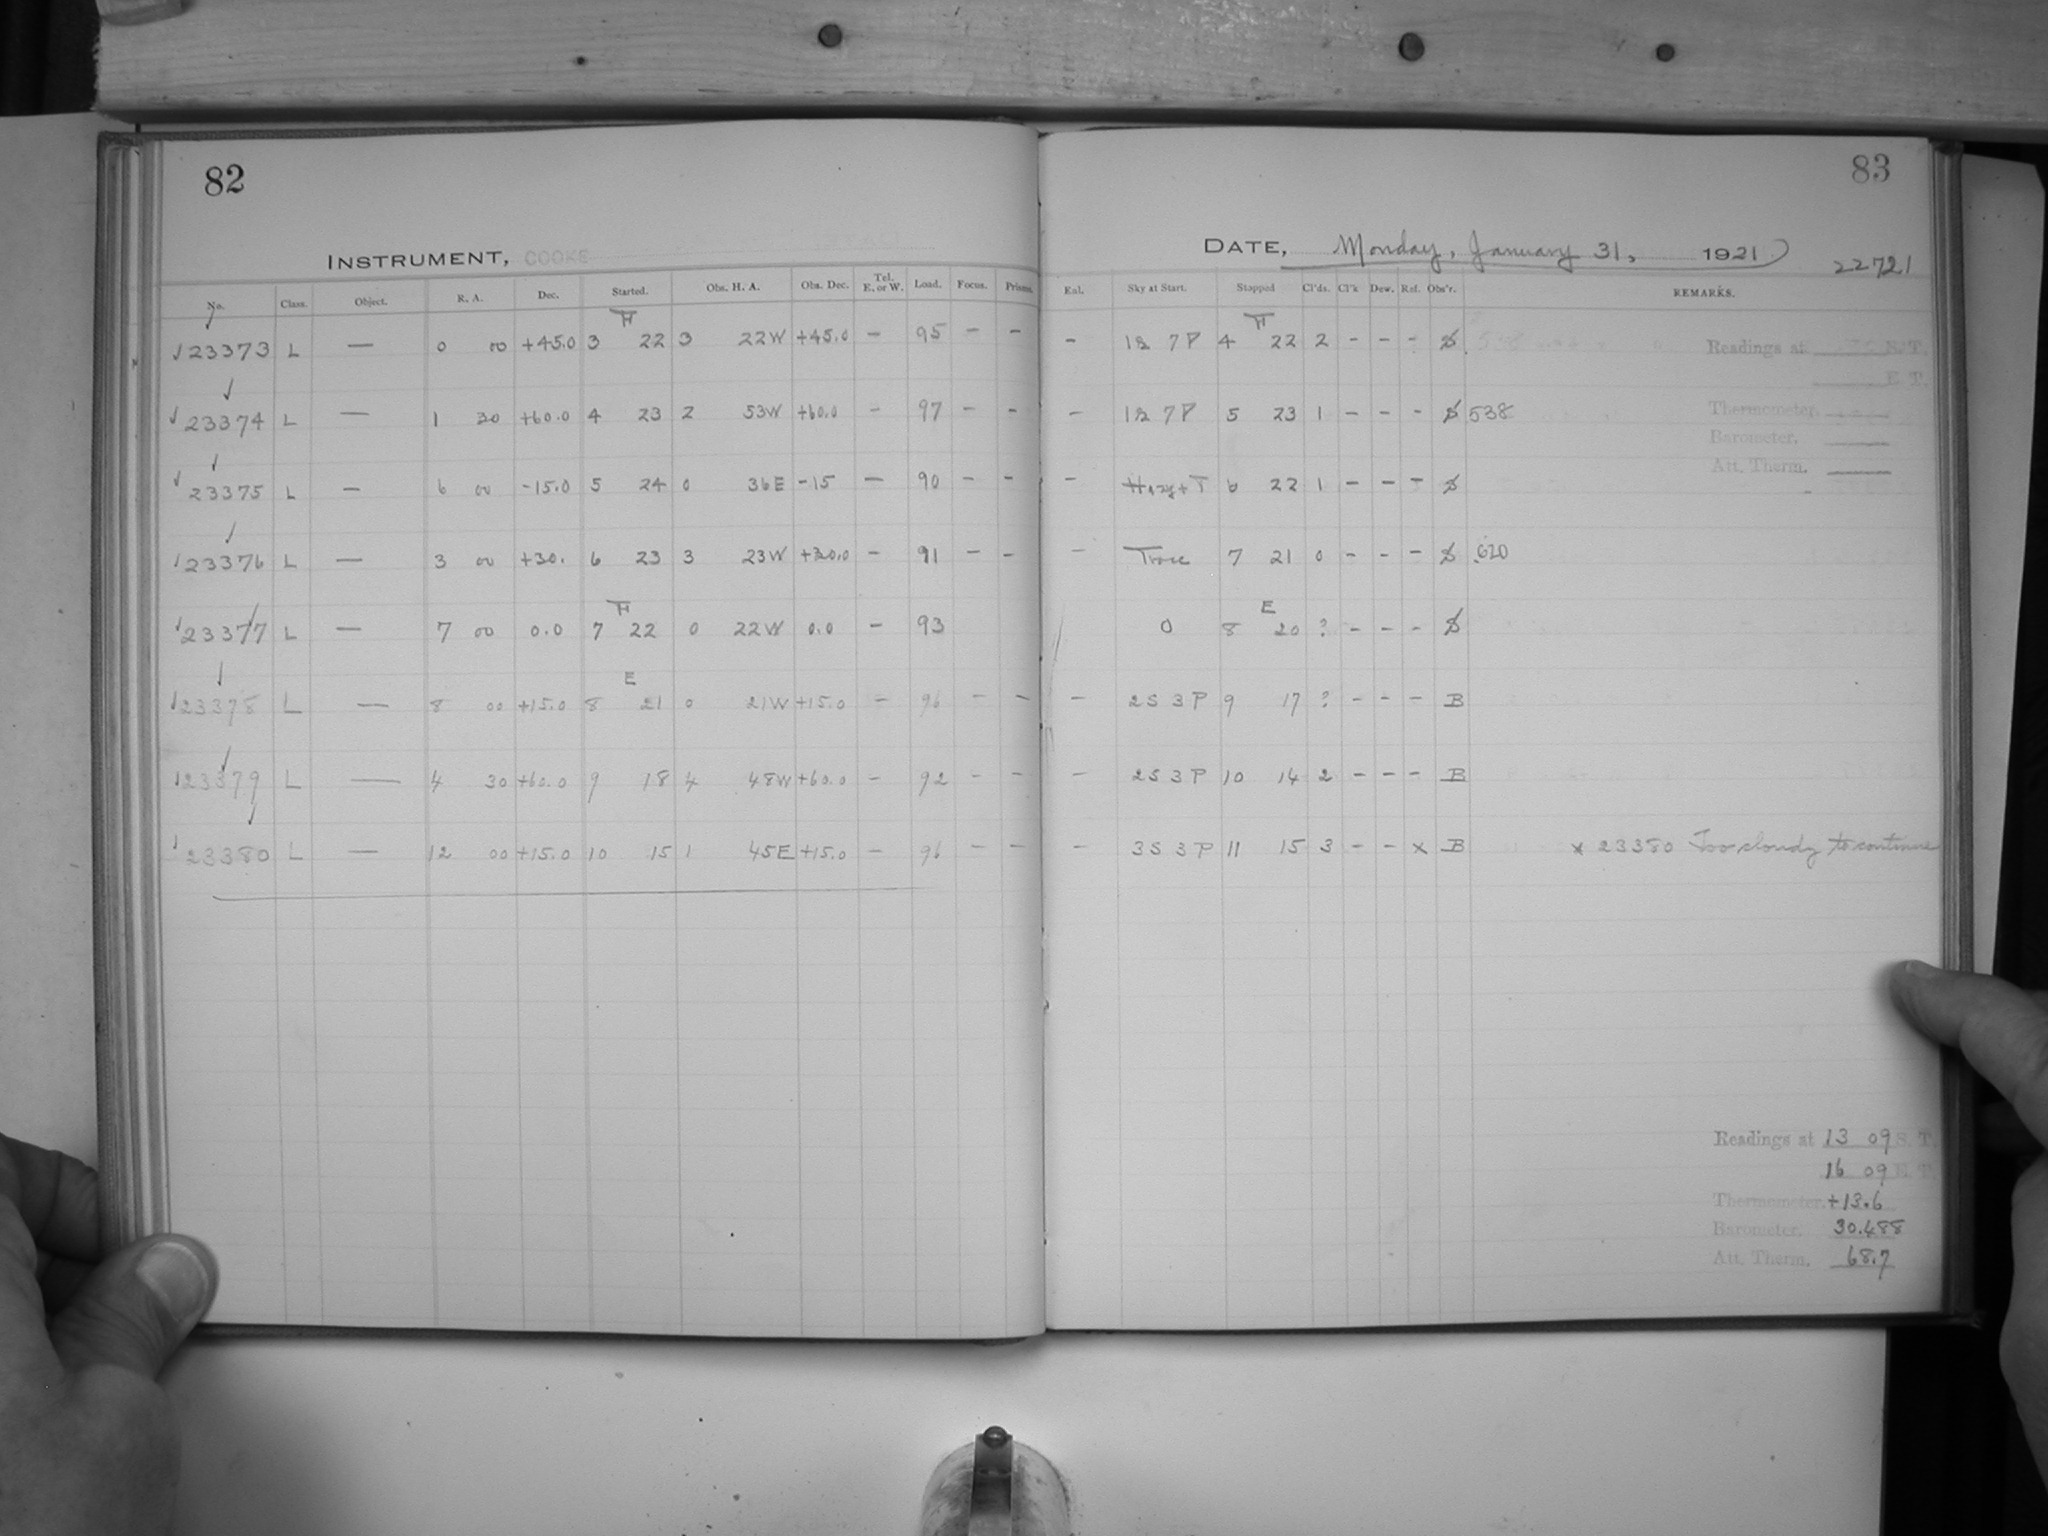 82
INSTRUMENT, COOKE
No. Class. Object. R. A. Dec. Started. Obs. H. A. Obs. Dec. Tel. E. or W. Load. Focus. Prisms.
23373 L — 0 00 +45.0 3 22 3 22W +45.0 — 95 — —
23374 L — 1 30 +60.0 4 23 2 53W +60.0 — 97 — —
23375 L — 6 00 -15.0 5 24 0 36E -15 — 90 — —
23376 L — 3 00 +30. 6 23 3 23W +30.0 — 91 — —
H
23377 L — 7 00 0.0 7 22 0 22W 0.0 — 93
E
23378 L — 8 00 +15.0 8 21 0 21W +15.0 — 96 — —
23379 L — 4 30 +60.0 9 18 4 48W +60.0 — 92 — —
23380 L — 12 00 +15.0 10 15 1 45E +15.0 — 96 — —
83
DATE, Monday, January 31, 1921
22721
Eal. Sky at Start. Stopped Cl'ds. Cl'k Dew. Ref. Obs'r. REMARKS.
— 1S 7P 4 22 2 - - - S
— 1S 7P 5 23 1 - - - S 538
— Hazy + T 6 22 1 - - - S
— Trace 7 21 0 - - - S .620
E
0 8 20 ? - - - S
— 2S 3P 9 17 ? - - - B
— 2S 3P 10 14 2 - - - B
— 3S 3P 11 15 3 - - x B x 23380 Too cloudy to continue
Readings at S. T.
E. T.
Thermometer.
Barometer.
Att. Therm.
Readings at 13 09 S. T.
16 09 E. T.
Thermometer. +13.6
Barometer. 30.488
Att. Therm. 68.7